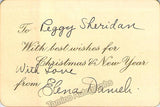 To Peggy Sheridan
With best wishes for
Christmas & New Year
With Love
from Elena Danieli